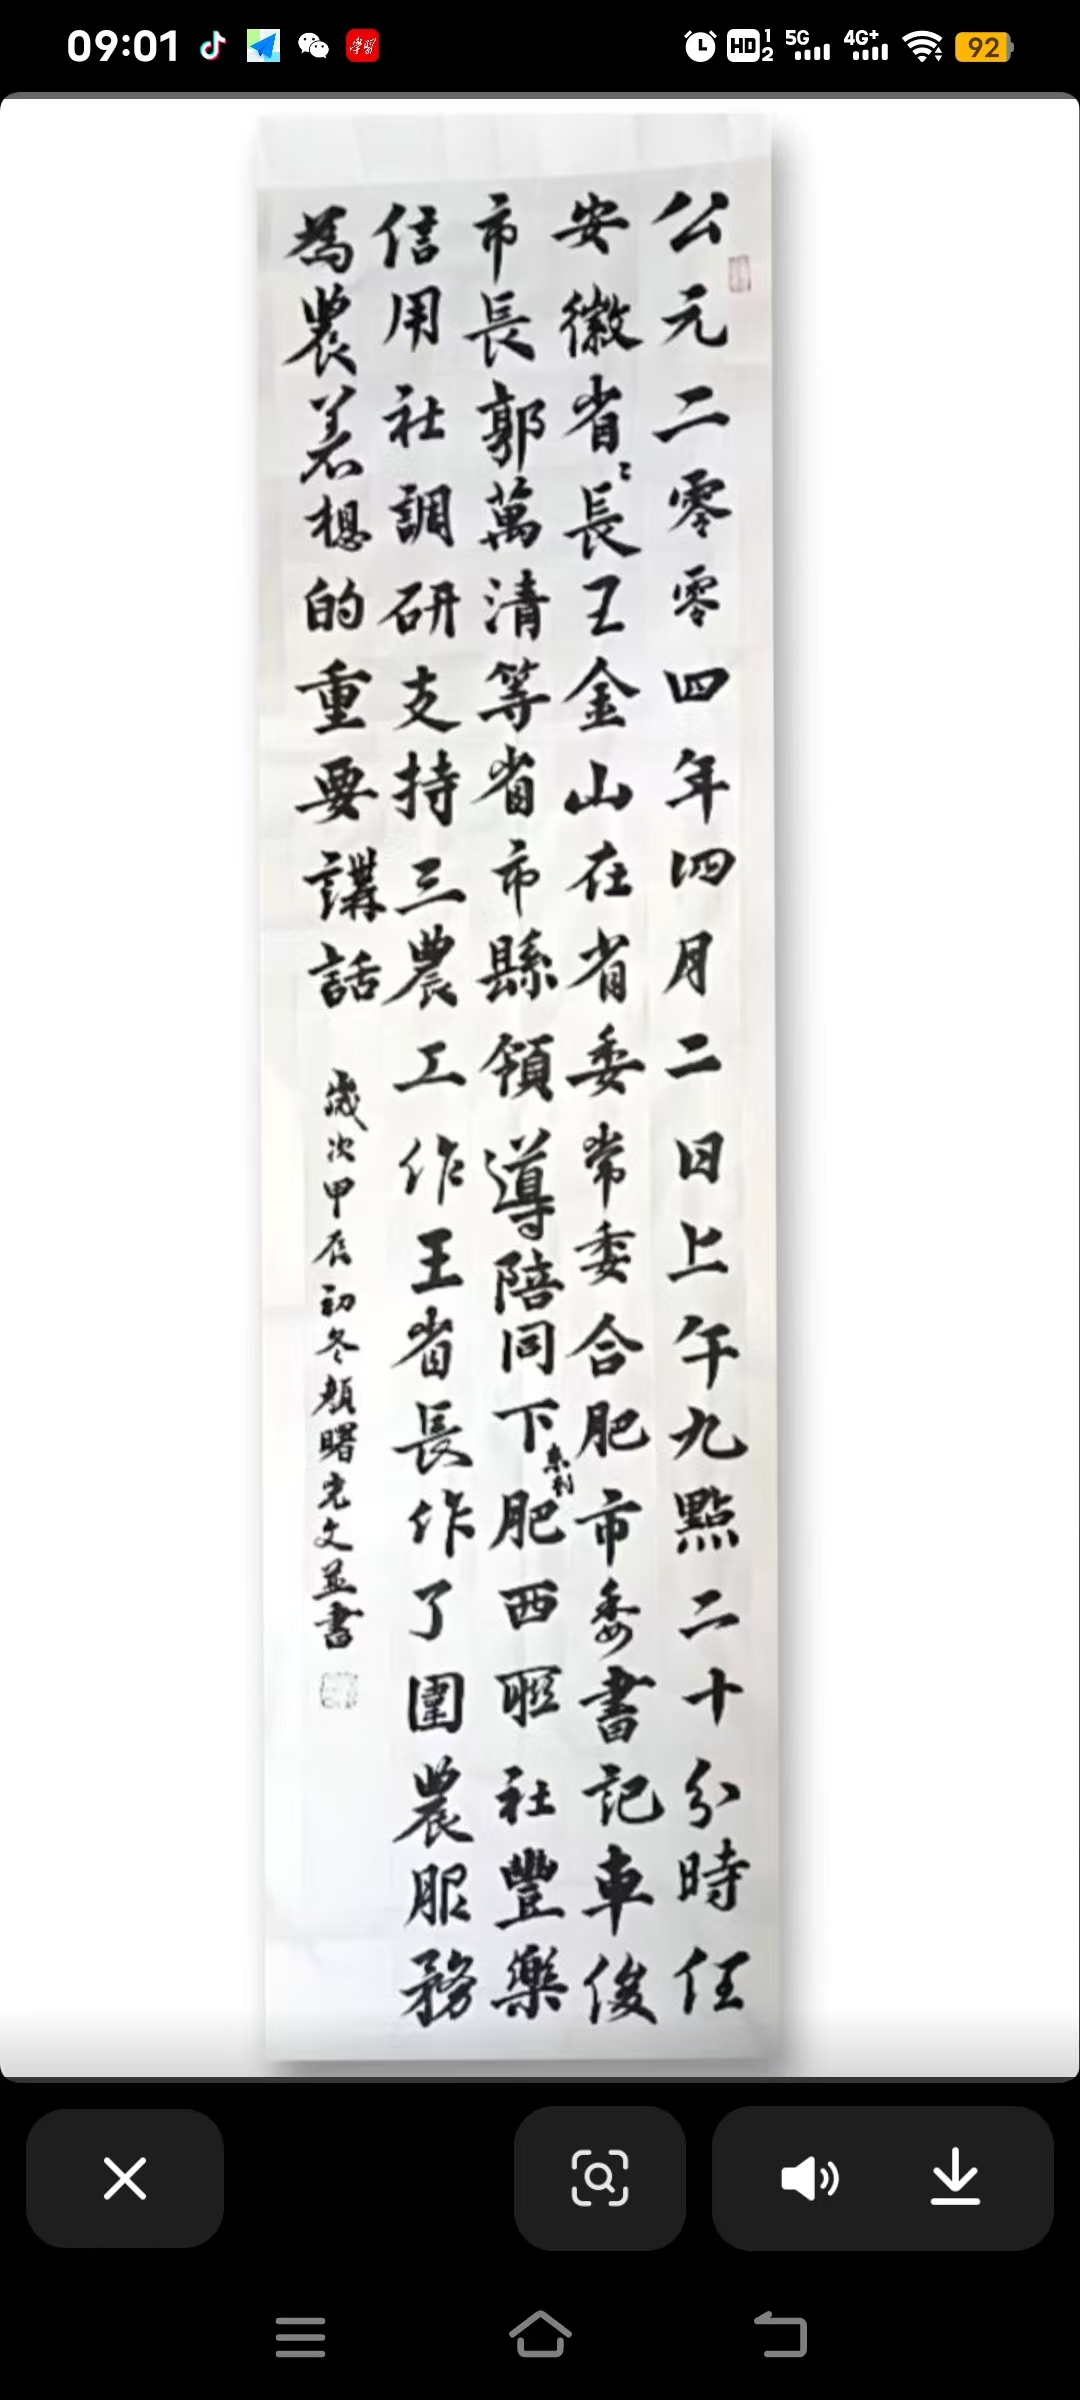 09:01
HD 1 2 5G 4G+ 92
公元二零零四年四月二日上午九點二十分時任
安徽省長王金山在省委常委合肥市委書記車俊
市長郭萬清等省市縣領導陪同下來到肥西聯社豐樂
信用社調研支持三農工作王省長作了圍農服務
為農着想的重要講話
歲次甲辰初冬顏曙光文並書